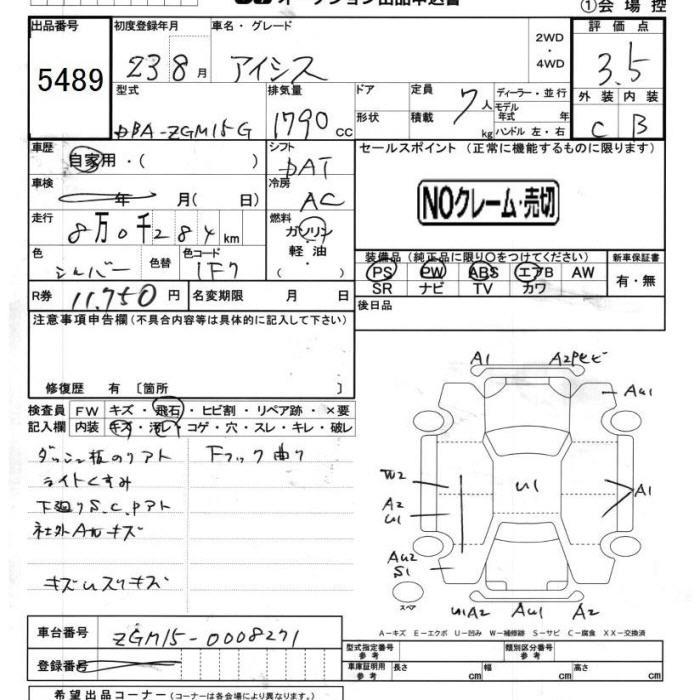 ①会場控
出品番号 初度登録年月 車名・グレード 2WD・4WD 評価点
5489 23 8月 アイシス 3.5
型式 排気量 ドア 定員 7人 ディーラー・並行 外装 内装
形状 積載 kg モデル年式 年式
DBA-ZGM15G 1790cc ハンドル 左・右 C B
車歴 自家用・( ) シフト DAT セールスポイント (正常に機能するものに限ります)
車検 年 月( 日) 冷房 AC
NOクレーム・売切
走行 8万0千284km 燃料 ガソリン
軽油
( )
色 シルバー 色替 色コード 1F7
装備品 (純正品に限り○をつけてください) 新車保証書
PS PW ABS エアB AW 有・無
SR ナビ TV カワ
R券 11,750円 名変期限 月 日 後日品
注意事項申告欄 (不具合内容等は具体的に記入して下さい)
修復歴 有 〔箇所 〕
検査員 FW キズ・飛石・ヒビ割・リペア跡・×要
記入欄 内装 キズ・汚レ・コゲ・穴・スレ・キレ・破レ
ダッシュ板のリアト Fフック曲り
ライトくすみ
下廻りS.C.Pアト
社外Aルキズ
キズUスリキズ
A1 A2 AU1
W2 A2 U1 U1 A1
AU2 S1
スペア
U1A2 AU1 A2
A−キズ E−エクボ U−凹み W−補修跡 S−サビ C−腐食 XX−交換済
車台番号 ZGM15-0008271
型式指定番号 参考 類別区分番号 参考
登録番号
車庫証明用 参考 長さ cm 幅 cm 高さ cm
希望出品コーナー (コーナーは各会場により異なります。)